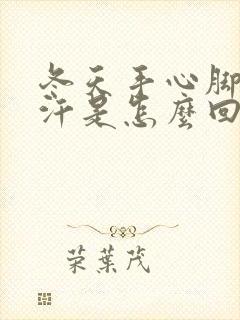 冬天手心脚
汗是怎麼回
荣葉茂